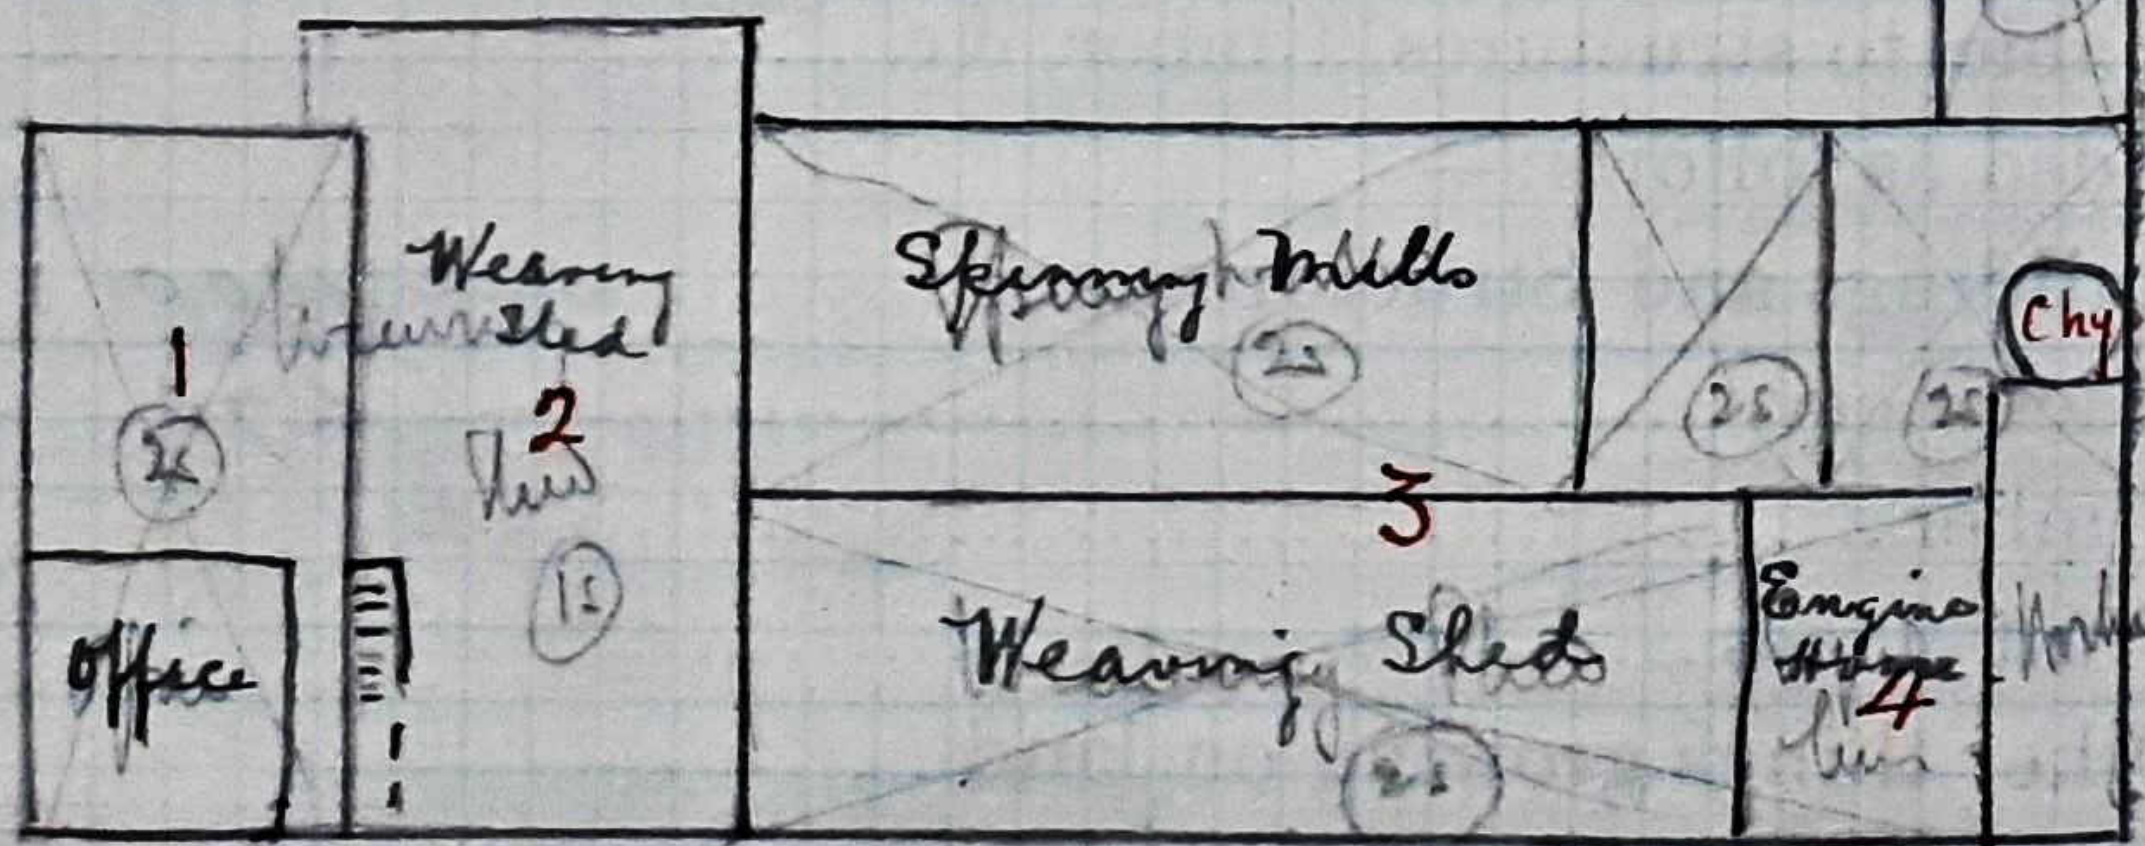 1
2s
Office
Weaving
Shed
2
1s
Spinning Mills
2s
2s
2s
Chy
3
Weaving Sheds
2s
Engine
House
4